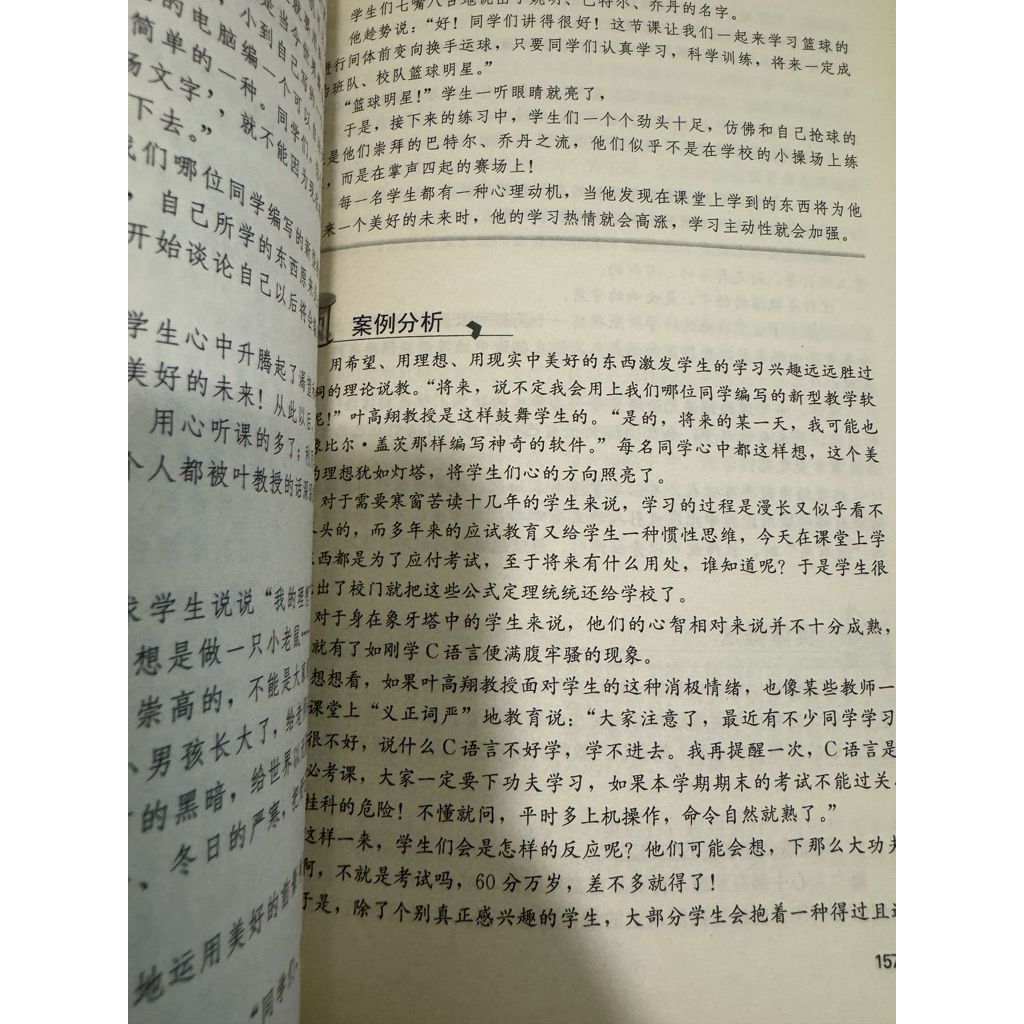 的电脑编一个可以
小到自己写的
简单的一种。同学们,
场文字,就不能因为
下去。”
我们哪位同学编写的新型
,自己所学的东西原来
开始谈论自己以后将会
学生心中升腾起了渴望
美好的未来!从此以后,
用心听课的多了;
个人都被叶教授的话深深
求学生说说“我的理想
想是做一只小老鼠……
崇高的,不能是大
小男孩长大了,给老
的黑暗,给世界以
、冬日的严寒,把
地运用美好的前景
“同学们,
学生们七嘴八舌地说出了姚明、巴特尔、乔丹的名字。
他趁势说:“好!同学们讲得很好!这节课让我们一起来学习篮球的
进行间体前变向换手运球,只要同学们认真学习,科学训练,将来一定成
为班队、校队篮球明星。”
“篮球明星!”学生一听眼睛就亮了,
于是,接下来的练习中,学生们一个个劲头十足,仿佛和自己抢球的
是他们崇拜的巴特尔、乔丹之流,他们似乎不是在学校的小操场上练
,而是在掌声四起的赛场上!
每一名学生都有一种心理动机,当他发现在课堂上学到的东西将为他
来一个美好的未来时,他的学习热情就会高涨,学习主动性就会加强。
案例分析
用希望、用理想、用现实中美好的东西激发学生的学习兴趣远远胜过
洞的理论说教。“将来,说不定我会用上我们哪位同学编写的新型教学软
呢!”叶高翔教授是这样鼓舞学生的。“是的,将来的某一天,我可能也
像比尔·盖茨那样编写神奇的软件。”每名同学心中都这样想,这个美
的理想犹如灯塔,将学生们心的方向照亮了。
对于需要寒窗苦读十几年的学生来说,学习的过程是漫长又似乎看不
头的,而多年来的应试教育又给学生一种惯性思维,今天在课堂上学
西都是为了应付考试,至于将来有什么用处,谁知道呢?于是学生很
出了校门就把这些公式定理统统还给学校了。
对于身在象牙塔中的学生来说,他们的心智相对来说并不十分成熟,
就有了如刚学C语言便满腹牢骚的现象。
想想看,如果叶高翔教授面对学生的这种消极情绪,也像某些教师一
课堂上“义正词严”地教育说:“大家注意了,最近有不少同学学习
很不好,说什么C语言不好学,学不进去。我再提醒一次,C语言是
必考课,大家一定要下功夫学习,如果本学期期末的考试不能过关,
挂科的危险!不懂就问,平时多上机操作,命令自然就熟了。”
这样一来,学生们会是怎样的反应呢?他们可能会想,下那么大功夫
啊,不就是考试吗,60分万岁,差不多就得了!
于是,除了个别真正感兴趣的学生,大部分学生会抱着一种得过且过
157